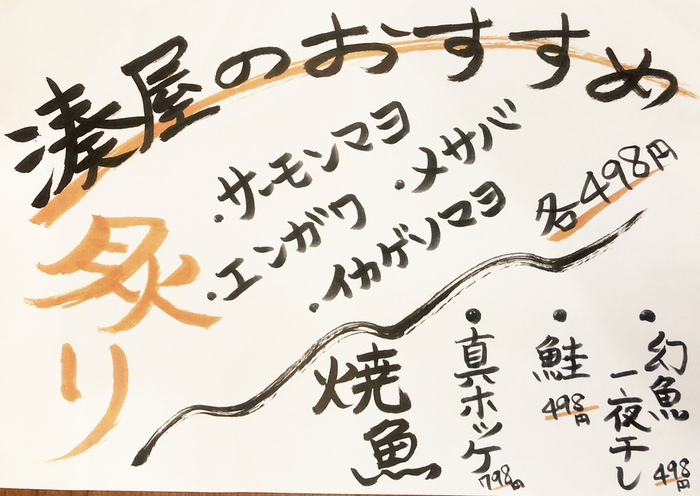 湊屋のおすすめ
炙り
・サーモンマヨ
・メサバ
・エンガワ
・イカゲソマヨ
各498円
焼魚
・真ホッケ
798円
・鮭
498円
・幻魚
一夜干し
498円